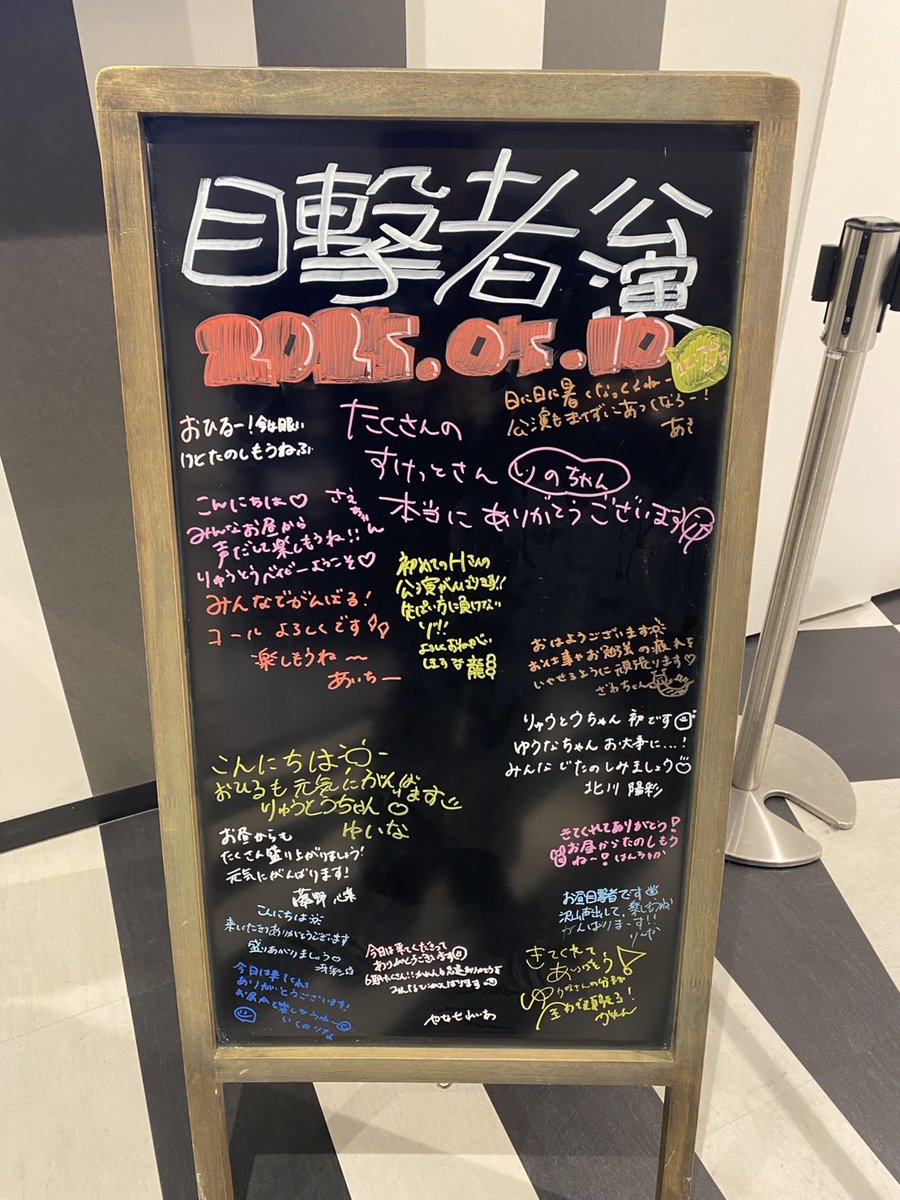 目撃者公演
2025.05.10
日に日に暑くなってくねー
公演もまけずにあつくなろー！
あき
おひるー！今は眠い
けどたのしもうねふ
たくさんの
すけっとさん りのちゃん
本当に ありがとうございます
こんにちは♡ さえちゃん
みんなお昼から
声だして楽しもうね!!
りゅうとうベイビーようこそ♡
みんなでがんばる！
コール よろしくです
楽しもうね〜
あいちー
初めてのHさんの
公演がんばります!!
先ぱい方に負けない
ゾ!!
よろしくおねがい
します
おはようございます
お仕事やお勉強の疲れを
いやせるように頑張ります♡
ざわちゃん
りゅうとうちゃん 初です
ゆうなちゃん お大事に…！
みんなでたのしみましょう
北川 陽彩
こんにちは
おひるも元気にがんばります
りゅうとうちゃん
ゆいな
お昼からも
たくさん盛り上がりましょう！
元気にがんばります！
藤野 心葉
きてくれてありがとう！
お昼からたのしもう
ね〜！
こんにちは
来てくださりありがとうございます
盛りあがりましょう
お昼目撃者です
沢山声出して、楽しもうね
がんばりまーす!!
今日は来てくださって
ありがとうございます
今日は来てくれて
ありがとうございます！
お昼から楽しもうねー
いくのリな
やなせ
きてくれて
ありがとう！
かれん